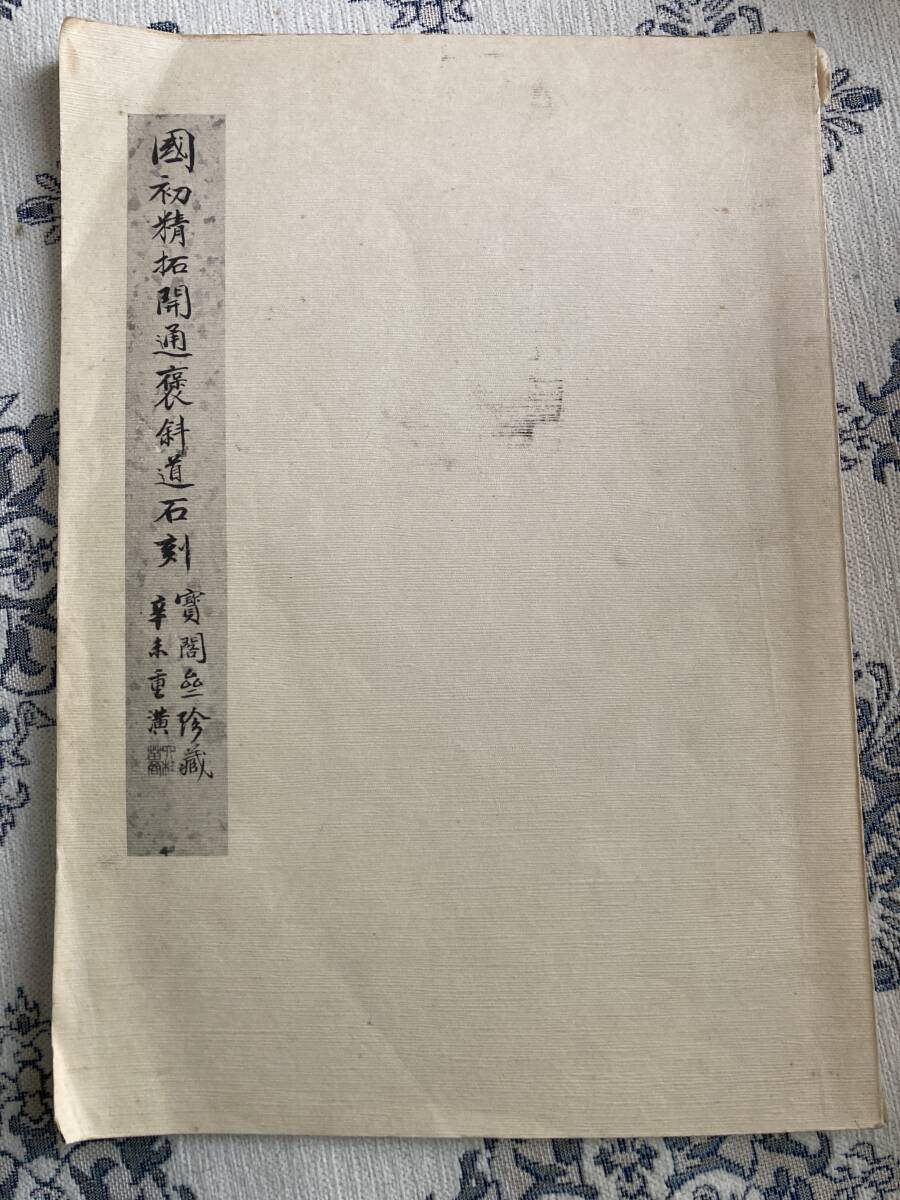 國初精拓開通褒斜道石刻
寶閣
珍藏
辛未重潢